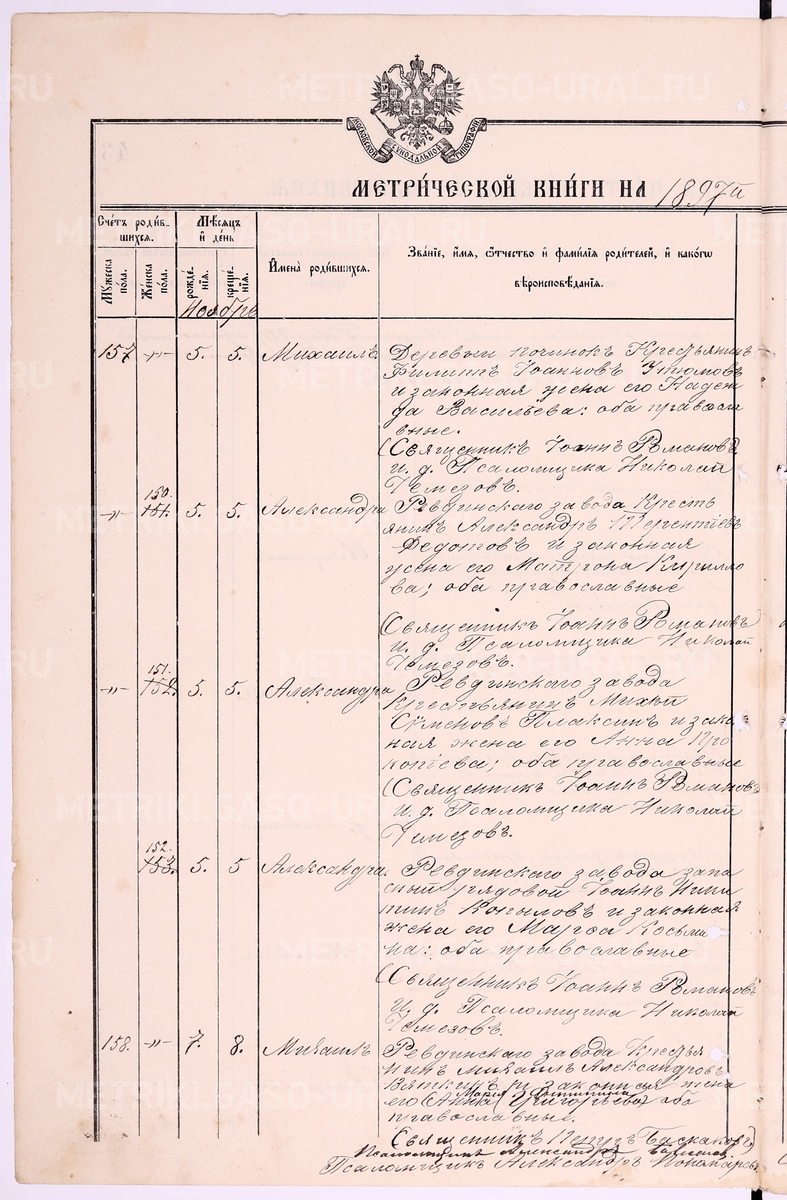 МОСКОВСКОЙ СѴНОДАЛЬНОЙ ТИПОГРАФІИ
МЕТРИ́ЧЕСКОЙ КНИ́ГИ НА 1897й
Сче́тъ роди́в-
шихся.
Мѣ́сяцъ
и҆ де́нь
И҆мена̀ роди́вшихся.
Зва́нїе, и҆́мя, ѻ҆́тчество и҆ фами́лїя роди́телей, и҆ како́гѡ
вѣроисповѣ́данїя.
Мꙋ́жеска по́ла.
Же́нска по́ла.
рожде́-нїя.
креще́-нїя.
Ноябрь
157 -„- 5. 5. Михаилъ Деревни починокъ Крестьянинъ
Филиппъ Іоанновъ Утюмовъ
и законная жена его Надеж
да Васильева: оба православ
вные.
(Священникъ Іоаннъ Романовъ
И. д. Псаломщика Николай
Чемезовъ.
150.
-„- 151. 5. 5. Александра Ревдинскаго завода Кресть
янинъ Александръ Терентіевъ
Федотовъ и законная
жена его Матрона Кирилло
ва; оба православные
(Священникъ Іоаннъ Романовъ
И. д. Псаломщика Николай
Чемезовъ.
151.
-„- 152. 5. 5. Александра Ревдинскаго завода
Крестьянинъ Михаил
Семеновъ Плаксинъ и зако
ная жена его Анна Про
копіева; оба православные
(Священникъ Іоаннъ Романовъ
И. д. Псаломщика Николай
Чемезовъ.
152.
153. 5. 5 Александра. Ревдинскаго завода запа
сный рядовой Іоаннъ Ники
тинъ Копыловъ и законная
жена его Марѳа Косьми
на: оба православные
(Священникъ Іоаннъ Романовъ
И. д. Псаломщика Николай
Чемезовъ.
158. -„- 7. 8. Михаилъ Ревдинскаго завода Крестья
нинъ Михаилъ Александровъ
Вяткинъ и законная жена
Марія
его (Анна Григорьева) оба
православные.
Священникъ Петръ Баскаковъ)
Псаломщикъ Александръ
Псаломщикъ Александръ Пономаревъ
METRIKI.GASO-URAL.RU